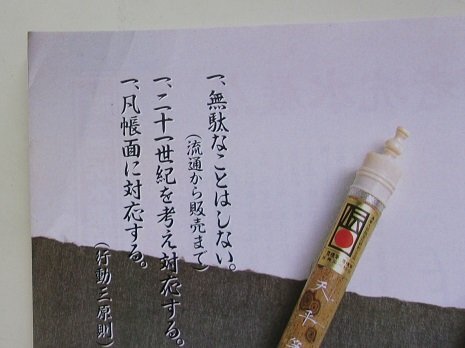 一、無駄なことはしない。
(流通から販売まで)
一、二十一世紀を考え対応する。
一、凡帳面に対応する。
(行動三原則)
天平筆